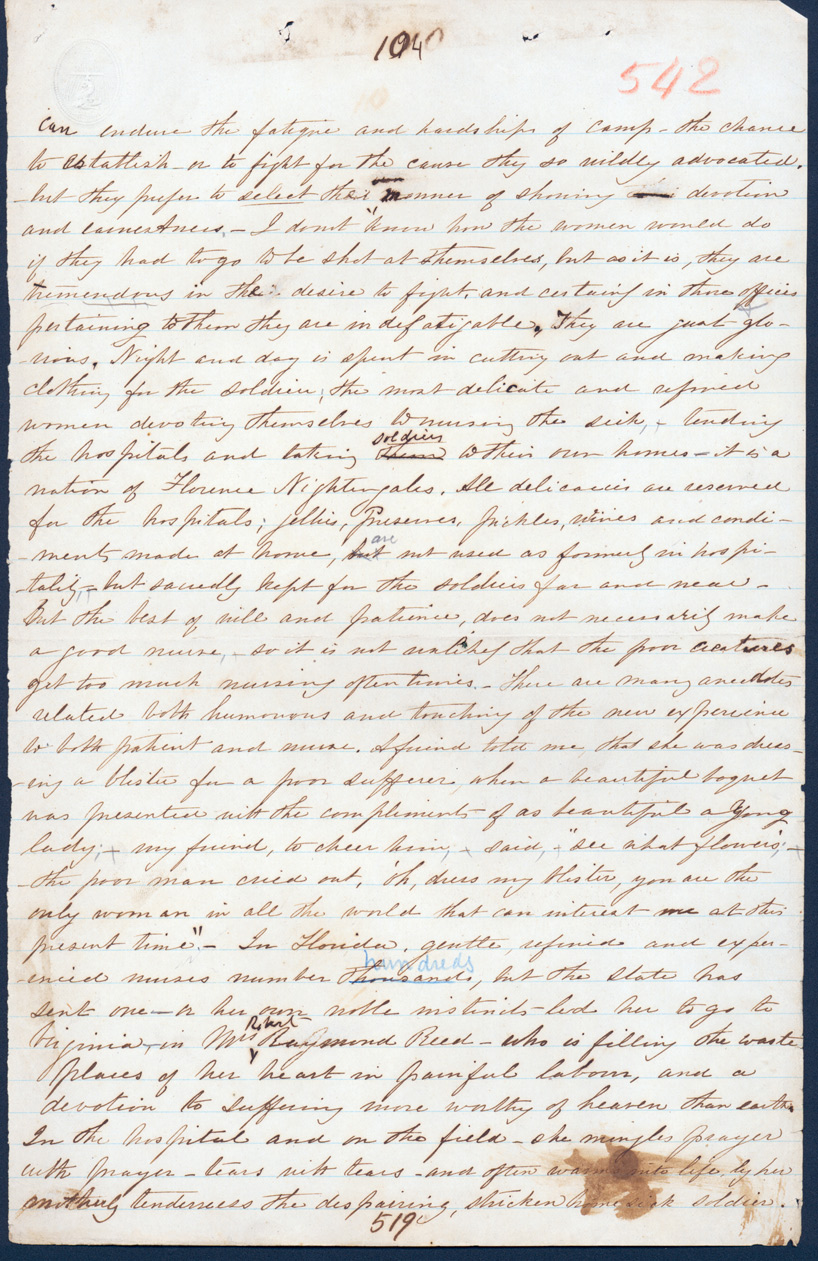 1040
542
can endure the fatigue and hardships of camp - the chance
to establish - or to fight for the cause they so wildly advocated.
- but they prefer to select their own manner of showing devotion
and earnestness. - I don't know how the women would do
if they had to go to be shot at themselves, but as it is, they are
tremendous in their desire to fight, and certainly in those offices
pertaining to them they are indefatigable. They are just glo-
rious. Night and day is spent in cutting out and making
clothing for the soldier; the most delicate and refined
women devoting themselves to nursing the sick, - tending
the hospitals and taking soldiers to their own homes - it is a
nation of Florence Nightingales. All delicacies are reserved
for the hospitals; jellies, preserves, pickles, wines and condi-
- ments made at home, are not used as formerly in hospi-
- tality, - but sacredly kept for the soldiers far and near -
But the best of will and patience, does not necessarily make
a good nurse, - so it is not unlikely that the poor creatures
get too much nursing often times. - There are many anecdotes
related both humorous and touching of the new experience
to both patient and nurse. A friend told me, that she was dress-
- ing a blister for a poor sufferer, when a beautiful boquet
was presented with the compliments of as beautiful a young
lady; - my friend, to cheer him, - said, - "see what flowers", -
- the poor man cried out, 'Oh, dress my blister, you are the
only woman in all the world that can interest me at this
present time". - In Florida, gentle, refined and exper-
- ienced nurses number thousands, hundreds but the State has
sent one - or her own noble instincts led her to go to
Virginia, - in Mrs Robert Raymond Reed - who is filling the waste
places of her heart in painful labour, and a
devotion to suffering more worthy of heaven than earth.
In the hospital and on the field - she mingles prayer
with prayer - tears with tears - and often warms into life, by her
motherly tenderness the despairing, stricken home sick soldier.
519